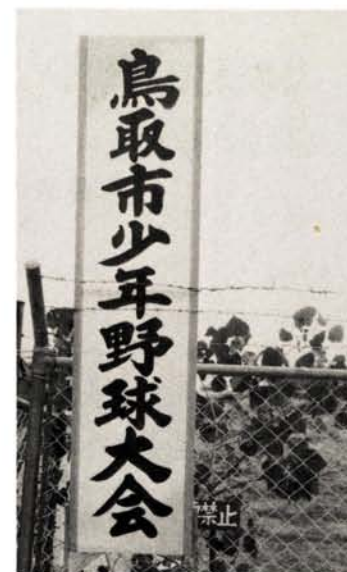 鳥取市少年野球大会
禁止